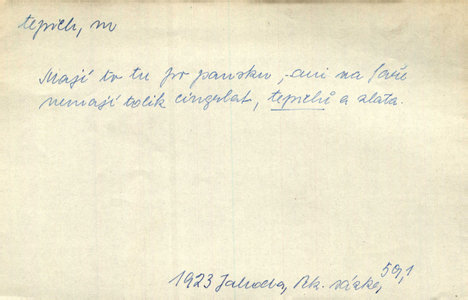 tepich, m
Mají to tu po pansku, ani na faře
nemají tolik cingrlat, tepichů a zlata.
1923 Jahoda, 59,1